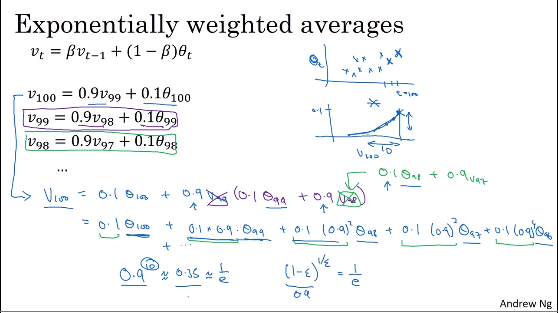 Exponentially weighted averages
v_t = βv_{t−1} + (1 − β)θ_t
v_100 = 0.9v_99 + 0.1θ_100
v_99 = 0.9v_98 + 0.1θ_99
v_98 = 0.9v_97 + 0.1θ_98
...
θ_t
t=100
0.1
V_100
10
0.1 θ_98 + 0.9 V_97
V_100 = 0.1 θ_100 + 0.9 (0.1 θ_99 + 0.9 V_98)
= 0.1 θ_100 + 0.1 × 0.9 · θ_99 + 0.1 (0.9)² θ_98 + 0.1 (0.9)³ θ_97 + 0.1 (0.9)⁴ θ_96
+ ...
0.9^10 ≈ 0.35 ≈ 1/e
(1−ε)^{1/ε} = 1/e
0.9
Andrew Ng